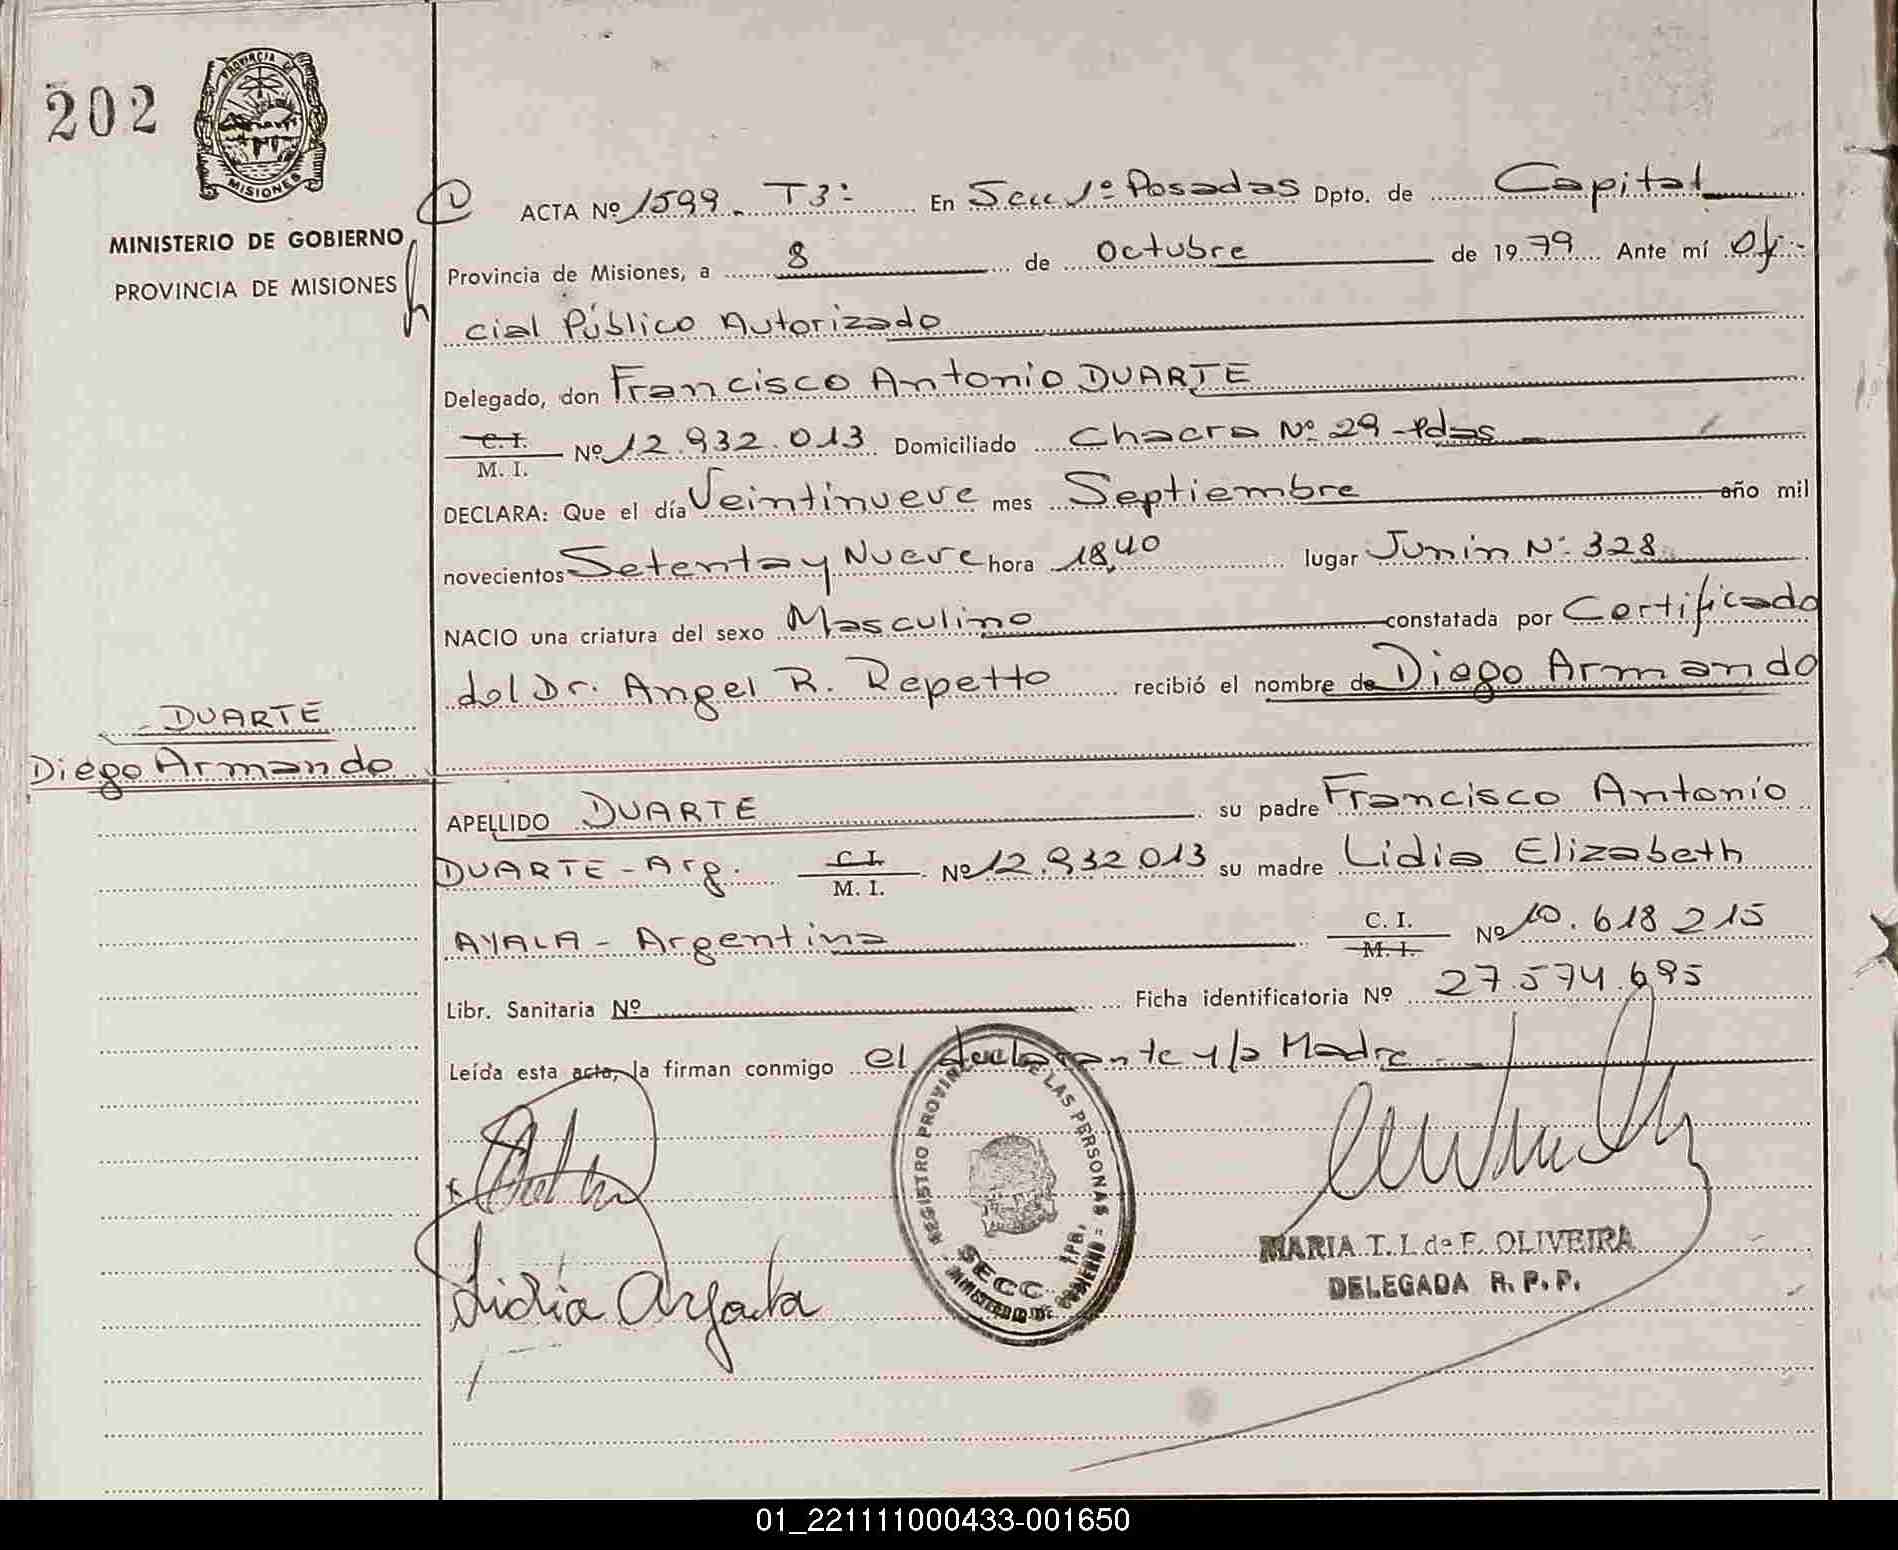 202
PROVINCIA DE
MISIONES
MINISTERIO DE GOBIERNO
PROVINCIA DE MISIONES
ACTA Nº 1599. T3: En Secc 1º Posadas Dpto. de Capital
Provincia de Misiones, a 8 de Octubre de 1979 Ante mí Ofi-
cial Público Autorizado
Delegado, don Francisco Antonio DUARTE
C. I.
M. I. Nº 12.932.013 Domiciliado Chacra Nº 29 - Pdas
DECLARA: Que el día Veintinueve mes Septiembre año mil
novecientos Setenta y Nueve hora 18,40 lugar Junin Nº 328
NACIO una criatura del sexo Masculino constatada por Certificado
del Dr. Angel R. Repetto recibió el nombre de Diego Armando
DUARTE
Diego Armando
APELLIDO DUARTE su padre Francisco Antonio
DUARTE - Arg. C. I. M. I. Nº 12.932 013 su madre Lidia Elizabeth
AYALA - Argentina C. I. M. I. Nº 10.618 215
Libr. Sanitaria Nº Ficha identificatoria Nº 27.574.695
Leída esta acta, la firman conmigo el declarante y la Madre
REGISTRO PROVINCIAL DE LAS PERSONAS
SECC. 1RA.
MINISTERIO DE GOBIERNO
Lidia Ayala
MARIA T. I. de F. OLIVEIRA
DELEGADA R. P. P.
01_221111000433-001650